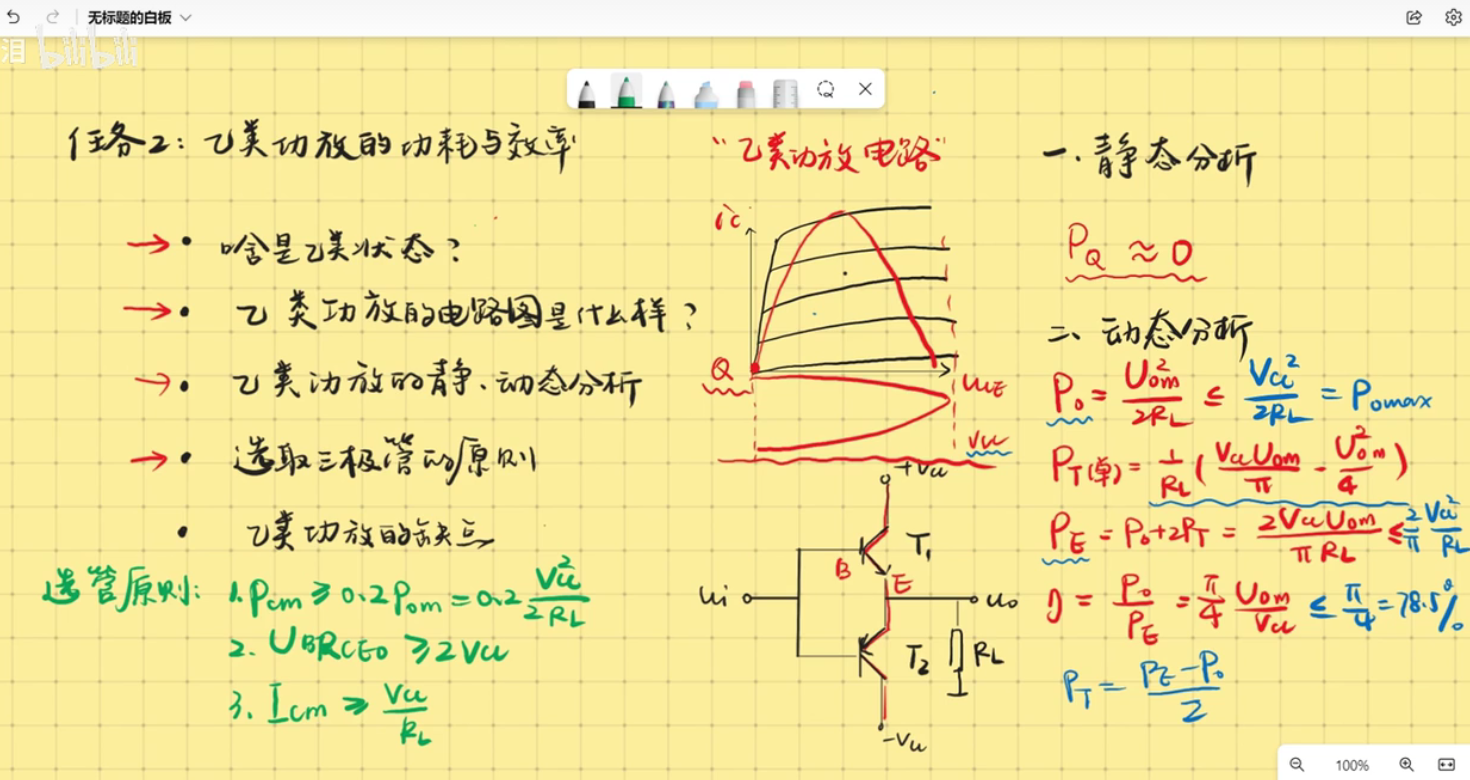 无标题的白板
泪 bilibili
任务2：乙类功放的功耗与效率
→ • 啥是乙类状态？
→ • 乙类功放的电路图是什么样？
→ • 乙类功放的静、动态分析
→ • 选取三极管的原则
• 乙类功放的缺点
选管原则：1. Pcm ≥ 0.2Pom = 0.2 Vcc²/2RL
2. UBRCEO ≥ 2Vcc
3. Icm ≥ Vcc/RL
“乙类功放电路”
ic
Q
uCE
Vcc
+Vcc
B
T1
E
ui
uo
T2
RL
-Vcc
一. 静态分析
PQ ≈ 0
二、动态分析
Po = Uom²/2RL ≤ Vcc²/2RL = Pomax
PT(单) = 1/RL (VccUom/π - Uom²/4)
PE = Po+2PT = 2VccUom/πRL ≤ 2/π Vcc²/RL
η = Po/PE = π/4 Uom/Vcc ≤ π/4 = 78.5%
PT = PE-Po/2
100%